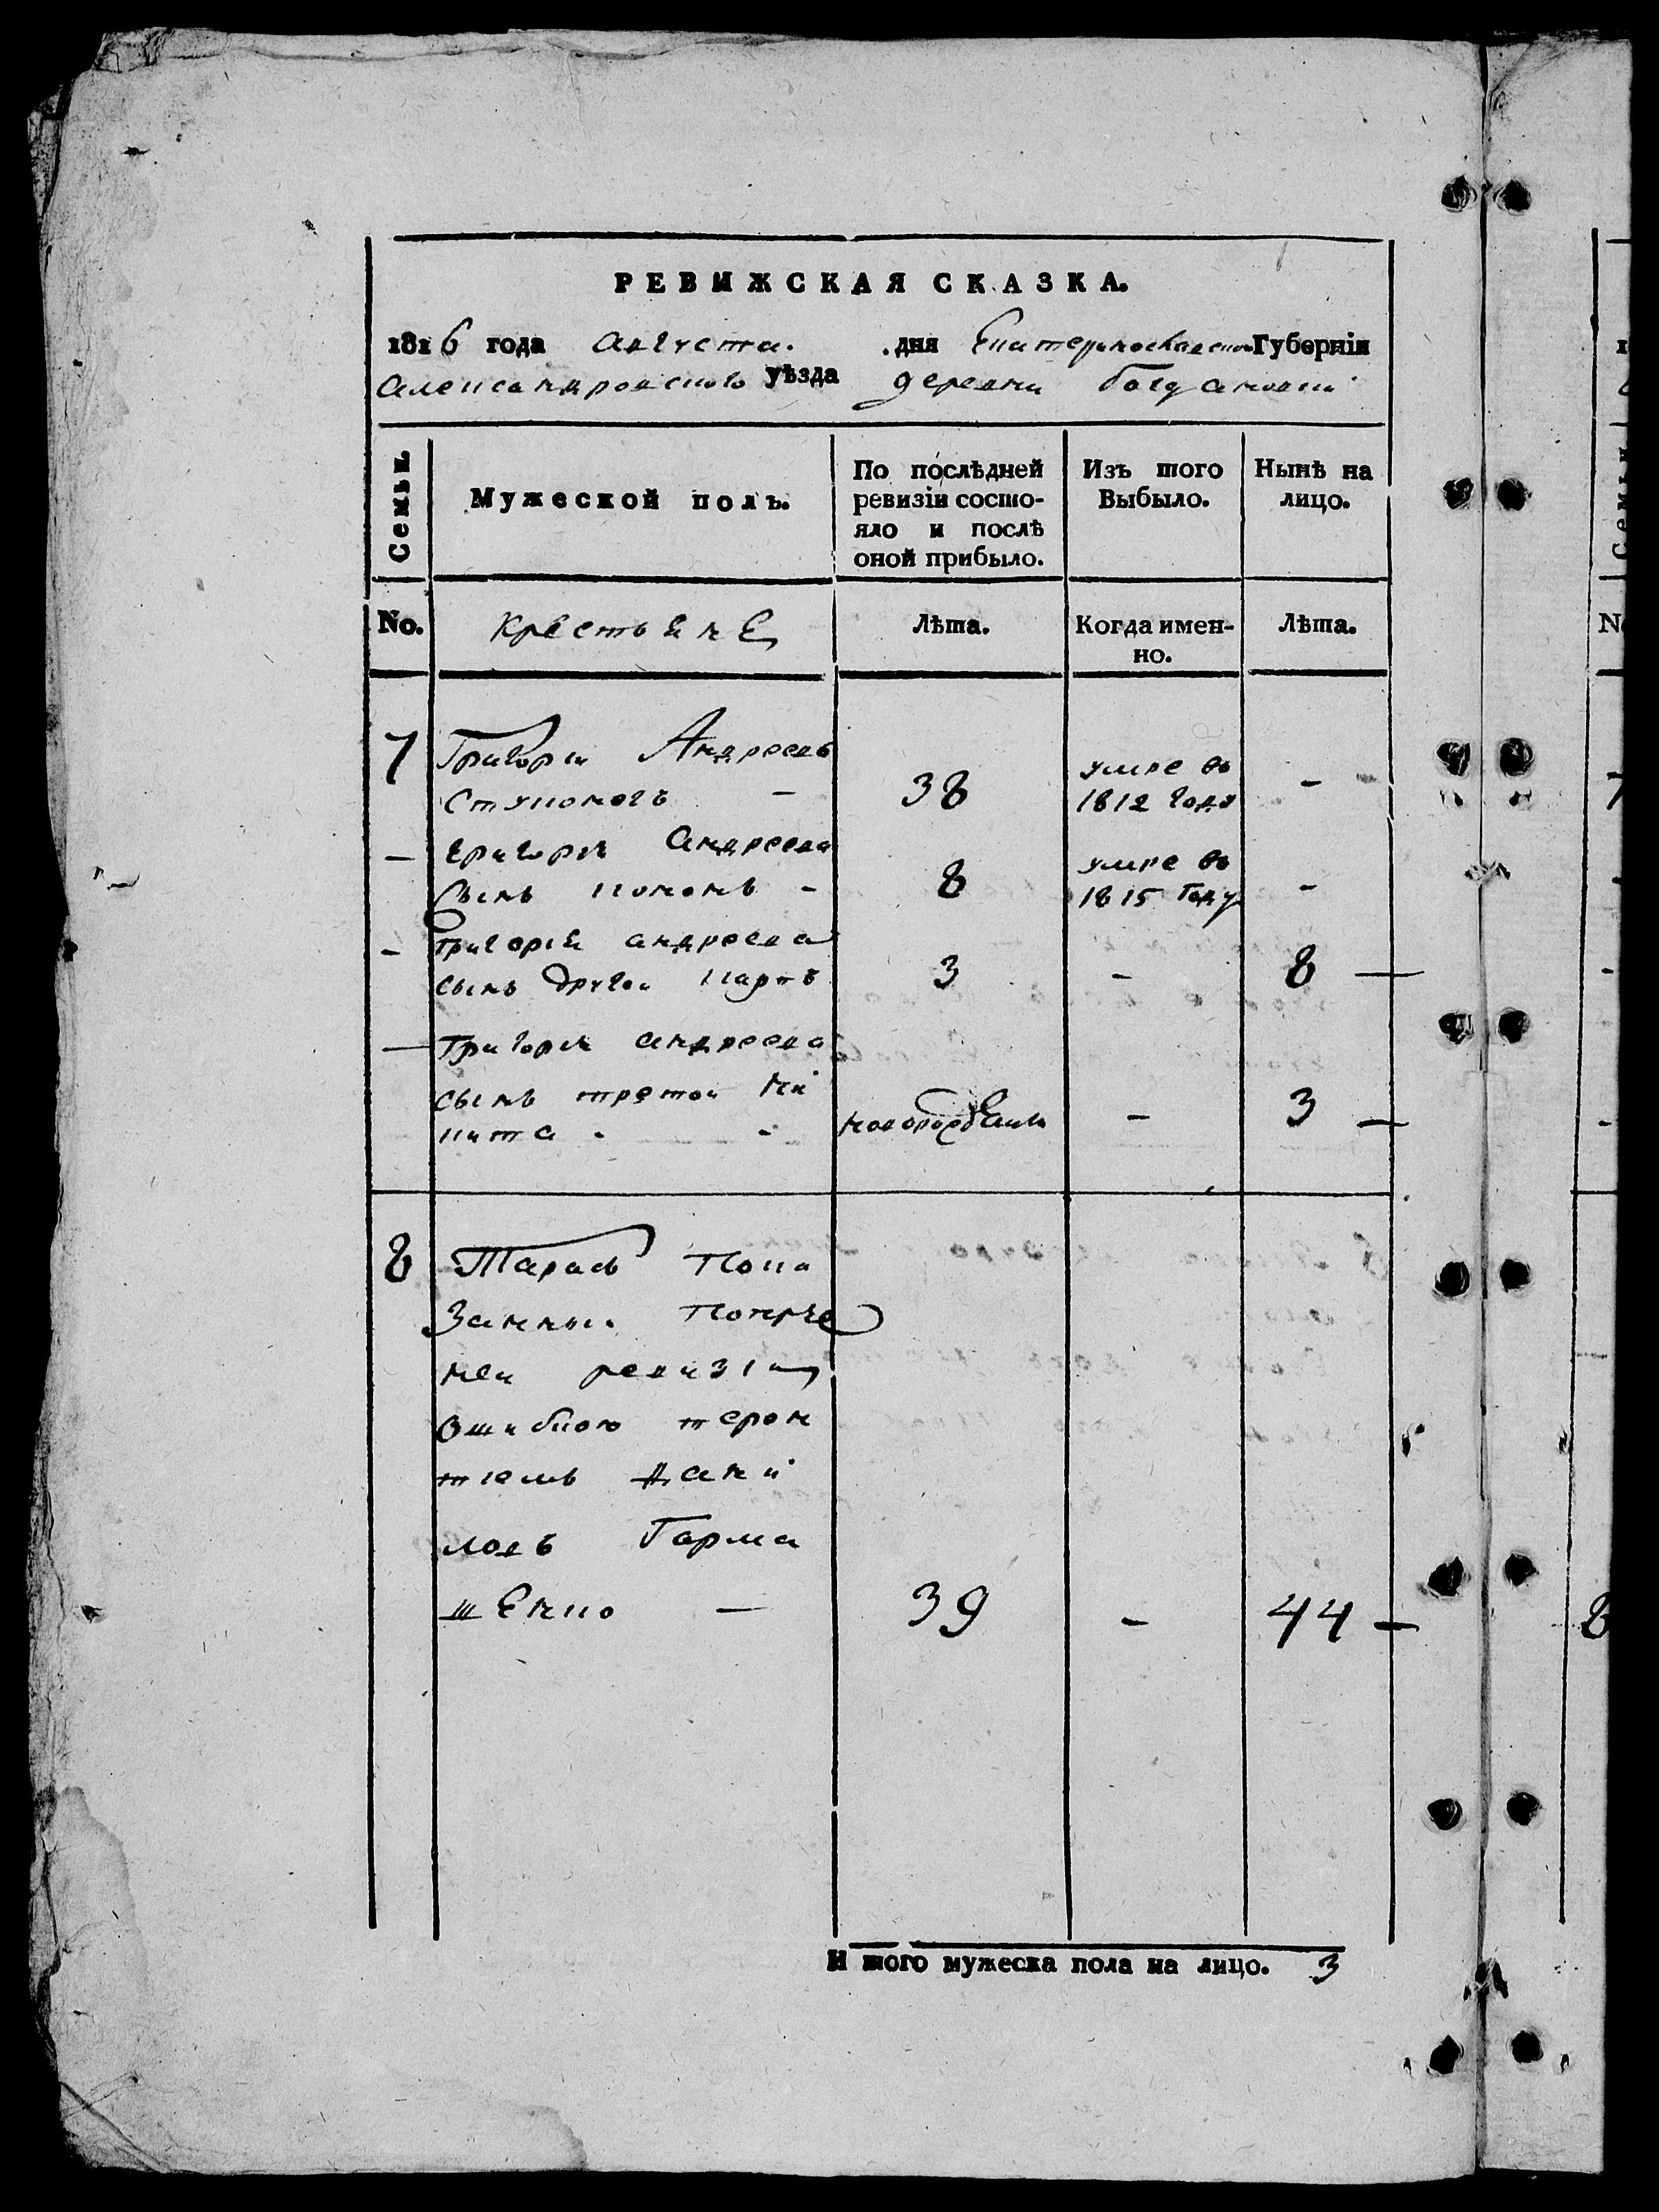 РЕВИЖСКАЯ СКАЗКА.
1816 года Августа. дня Екатеринославской Губерніи
Александровского уѣзда деревни Богдановки
Семьи. Мужеской полъ. По послѣдней ревизіи состояло и послѣ оной прибыло. Изъ того Выбыло. Нынѣ на лицо.
No. Крестьяне Лѣта. Когда именно. Лѣта.
7 Григори Андреевъ
Ступоногъ - 38 умре въ 1812 году -
- Григорія Андреева
сынъ Кононъ - 8 умре въ 1815 Году -
- Григорія андреева
сынъ другой Карпъ 3 - 8
- Григорія андреева
сынъ третой Ни
кита - новорожденъ - 3
8 Тарасъ Пока
Занной Попреж
ней ревизіи
Ошибкою терен
тіемъ Дани
ловъ Гарма
шЕнко - 39 - 44
Итого мужеска пола на лицо. 3
7
8